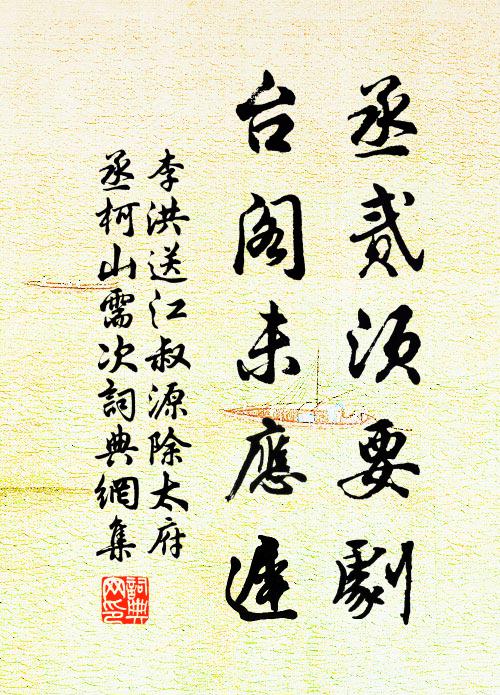 丞贰须要劇
台阁未應遲
李洪送江叔源除太府
丞柯山需次詞典網集
詞典
网印